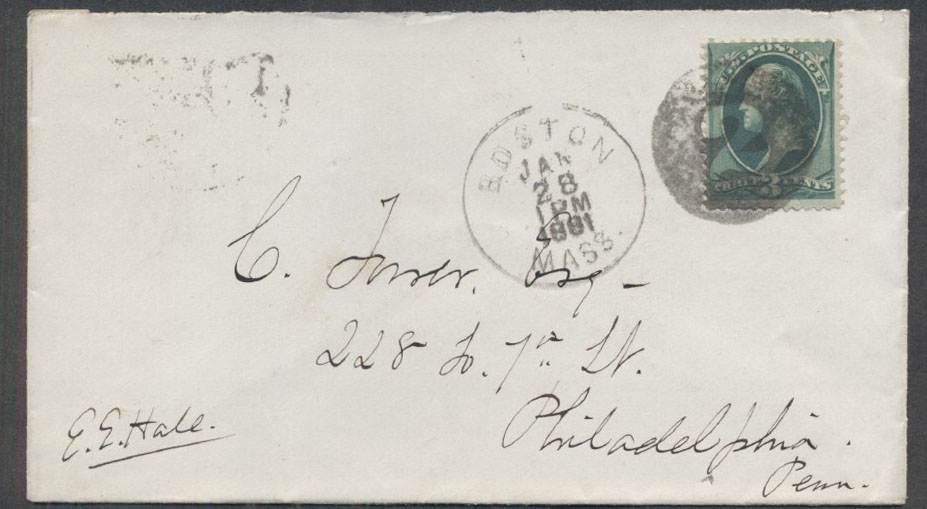 U.S. POSTAGE
THREE 3 CENTS
BOSTON
JAN
28
1 PM
1881
MASS.
C. Tower, Esq -
228 So. 7th St.
Philadelphia.
Penn.
E. E. Hale.